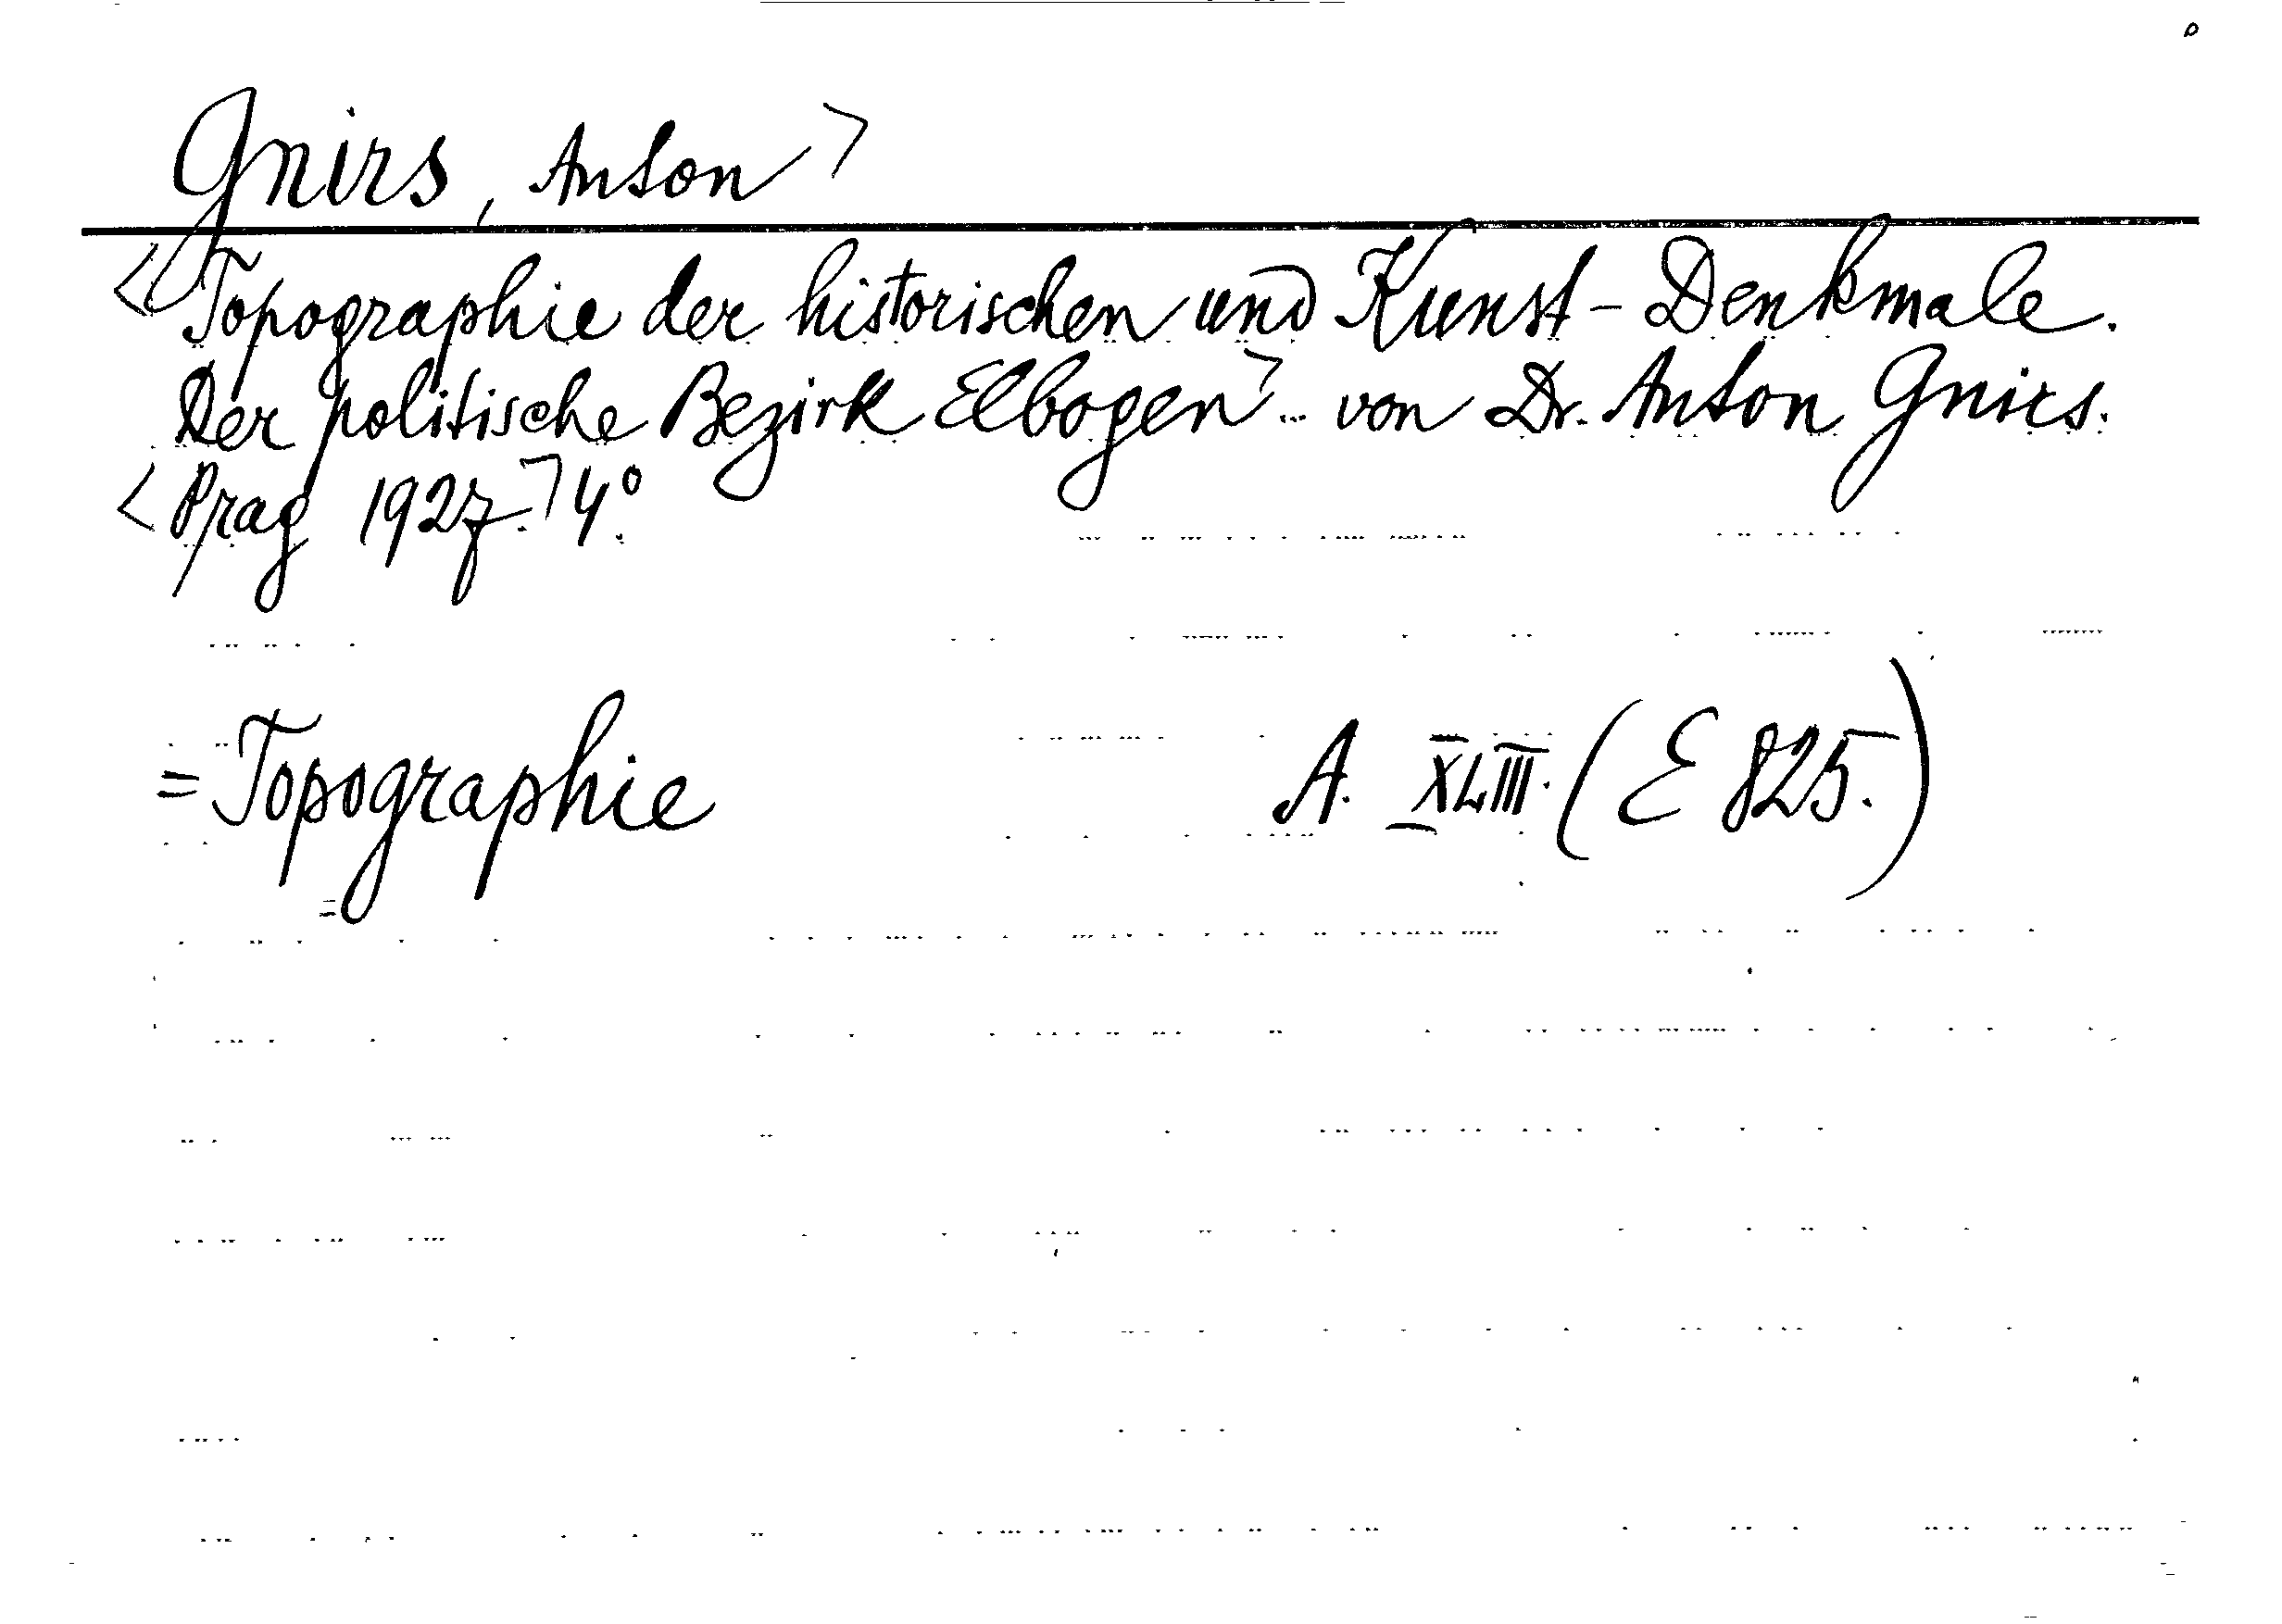 Gnirs, Anton>
<Topographie der historischen und Kunst-Denkmale.
Der politische Bezirk Elbogen> .. von Dr. Anton Gnirs.
<Prag 1927.> 4°.
= Topographie A. XLIII. (E 825.)